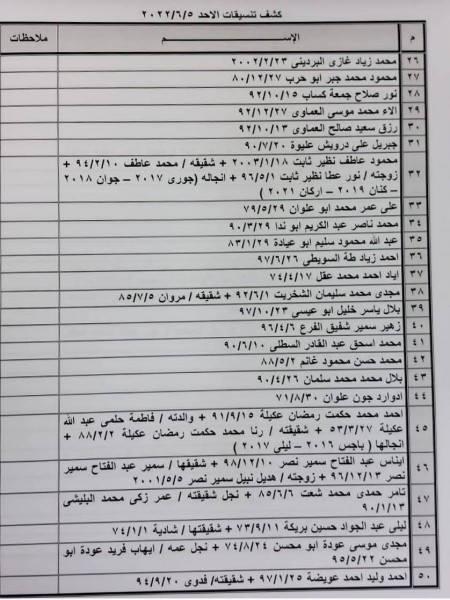 كشف تنسيقات الاحد ٢٠٢٢/٦/٥
م الإســــــم ملاحظات
٢٦ محمد زياد غازى البردينى ٢٠٠٢/٢/٢٣
٢٧ محمود محمد جبر ابو حرب ٨٠/١٢/٢٧
٢٨ نور صلاح جمعة كساب ٩٢/١٠/١٥
٢٩ الاء محمد موسى العماوى ٩٢/١٢/٢٧
٣٠ رزق سعيد صالح العماوى ٩٢/١٠/١٣
٣١ جبريل على درويش عليوة ٩٠/٧/٢٠
محمود عاطف نظير ثابت ٢٠٠٣/١/١٨ + شقيقه / محمد عاطف ٩٤/٢/١٠ +
٣٢ زوجته / نور عطا نظير ثابت ٩٦/٥/١ + انجاله (جورى ٢٠١٧ – جوان ٢٠١٨
– كنان ٢٠١٩ – اركان ٢٠٢١ )
٣٣ على عمر محمد ابو علوان ٧٩/٥/٢٩
٣٤ محمد ناصر عبد الكريم ابو ندا ٩٠/٣/٢٩
٣٥ عبد الله محمود سليم ابو عيادة ٨٣/١/٢٩
٣٦ احمد زياد طة السويطى ٩٧/٦/٢٦
٣٧ اياد احمد محمد عقل ٧٤/٤/١٧
٣٨ مجدى محمد سليمان الشخريت ٩٢/٦/١ + شقيقه / مروان ٨٥/٧/٥
٣٩ بلال ياسر خليل ابو عيسى ٩٧/١٠/٢٣
٤٠ زهير سمير شفيق الفرع ٩٦/٤/٦
٤١ محمد اسحق عبد القادر السطلى ٩٠/٦/١٠
٤٢ محمد حسن محمود غانم ٨٨/٥/٢
٤٣ بلال محمد محمد سلمان ٩٠/٤/٢٦
٤٤ ادوارد جون علوان ٧١/٨/٣٠
احمد محمد حكمت رمضان عكيلة ٩١/٩/١٥ + والدته / فاطمة حلمى عبد الله
٤٥ عكيلة ٥٣/٣/٢٧ + شقيقته / رنا محمد حكمت رمضان عكيلة ٨٨/٢/٢ +
انجالها ( باجس ٢٠١٦ – ليلى ٢٠١٧ )
٤٦ ايناس عبد الفتاح سمير نصر ٩٨/١٢/١٠ + شقيقها / سمير عبد الفتاح سمير
نصر ٩٦/١٢/١٣ + زوجته / هديل نبيل سمير نصر ٢٠٠١/٥/٥
٤٧ تامر حمدى محمد شعت ٨٥/٦/٦ + نجل شقيقته / عمر زكى محمد البليشى
٩٠/١/١٣
٤٨ ليلى عبد الجواد حسين بريكة ٧٣/٩/١١ + شقيقتها / شادية ٧٤/١/١
٤٩ مجدى موسى عودة ابو محسن ٧٤/٨/٢٤ + نجل عمه / ايهاب فريد عودة ابو
محسن ٩٥/٥/٢٢
٥٠ احمد وليد احمد عويضة ٩٧/١/٢٥ + شقيقته/ فدوى ٩٤/٩/٢٠